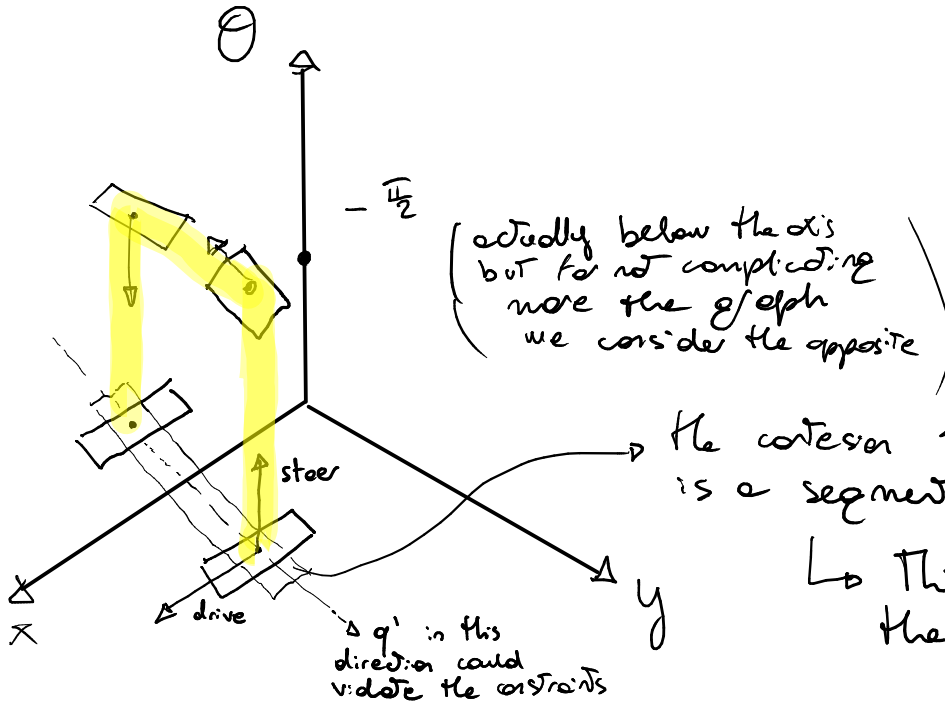 θ
- π/2
( actually below the axis
but for not complicating
more the graph
we consider the opposite )
the cartesian
is a segment
steer
↳ Thi
the
drive
x
y
q' in this
direction could
violate the constraints